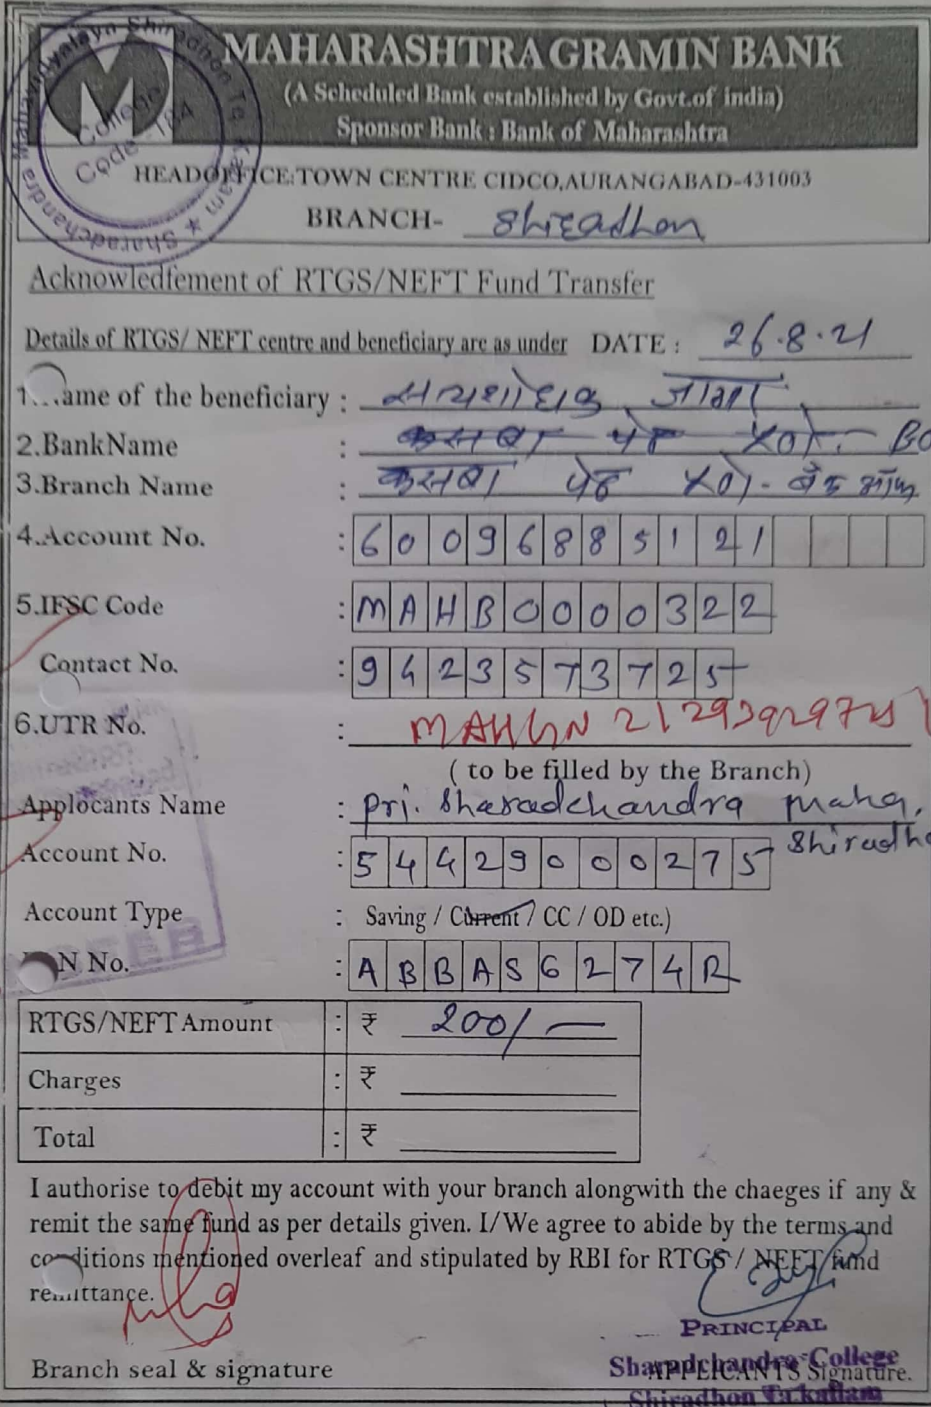 MAHARASHTRA GRAMIN BANK
(A Scheduled Bank established by Govt.of india)
Sponsor Bank : Bank of Maharashtra
College
Code 184
HEADOFFICE:TOWN CENTRE CIDCO,AURANGABAD-431003
BRANCH- Shiradhon
Acknowledfement of RTGS/NEFT Fund Transfer
Details of RTGS/ NEFT centre and beneficiary are as under DATE : 26.8.21
1. ame of the beneficiary :
2.BankName : कसबा पेठ
3.Branch Name : कसबा पेठ
4.Account No. : 60096885121
5.IFSC Code : MAHB0000322
Contact No. : 9423573725
6.UTR No. :
( to be filled by the Branch)
Applocants Name : pri. Sharadchandra maha,
Shiradho
Account No. : 54429000275
Account Type : Saving / Current / CC / OD etc.)
N No. : ABBAS6274R
RTGS/NEFT Amount : ₹ 200/-
Charges : ₹
Total : ₹
I authorise to debit my account with your branch alongwith the chaeges if any &
remit the same fund as per details given. I/We agree to abide by the terms and
conditions mentioned overleaf and stipulated by RBI for RTGS / NEFT fund
remittance.
PRINCIPAL
Sharadchandra College
Branch seal & signature APPLICANTS Signature.
Shiradhon Ta.kallam